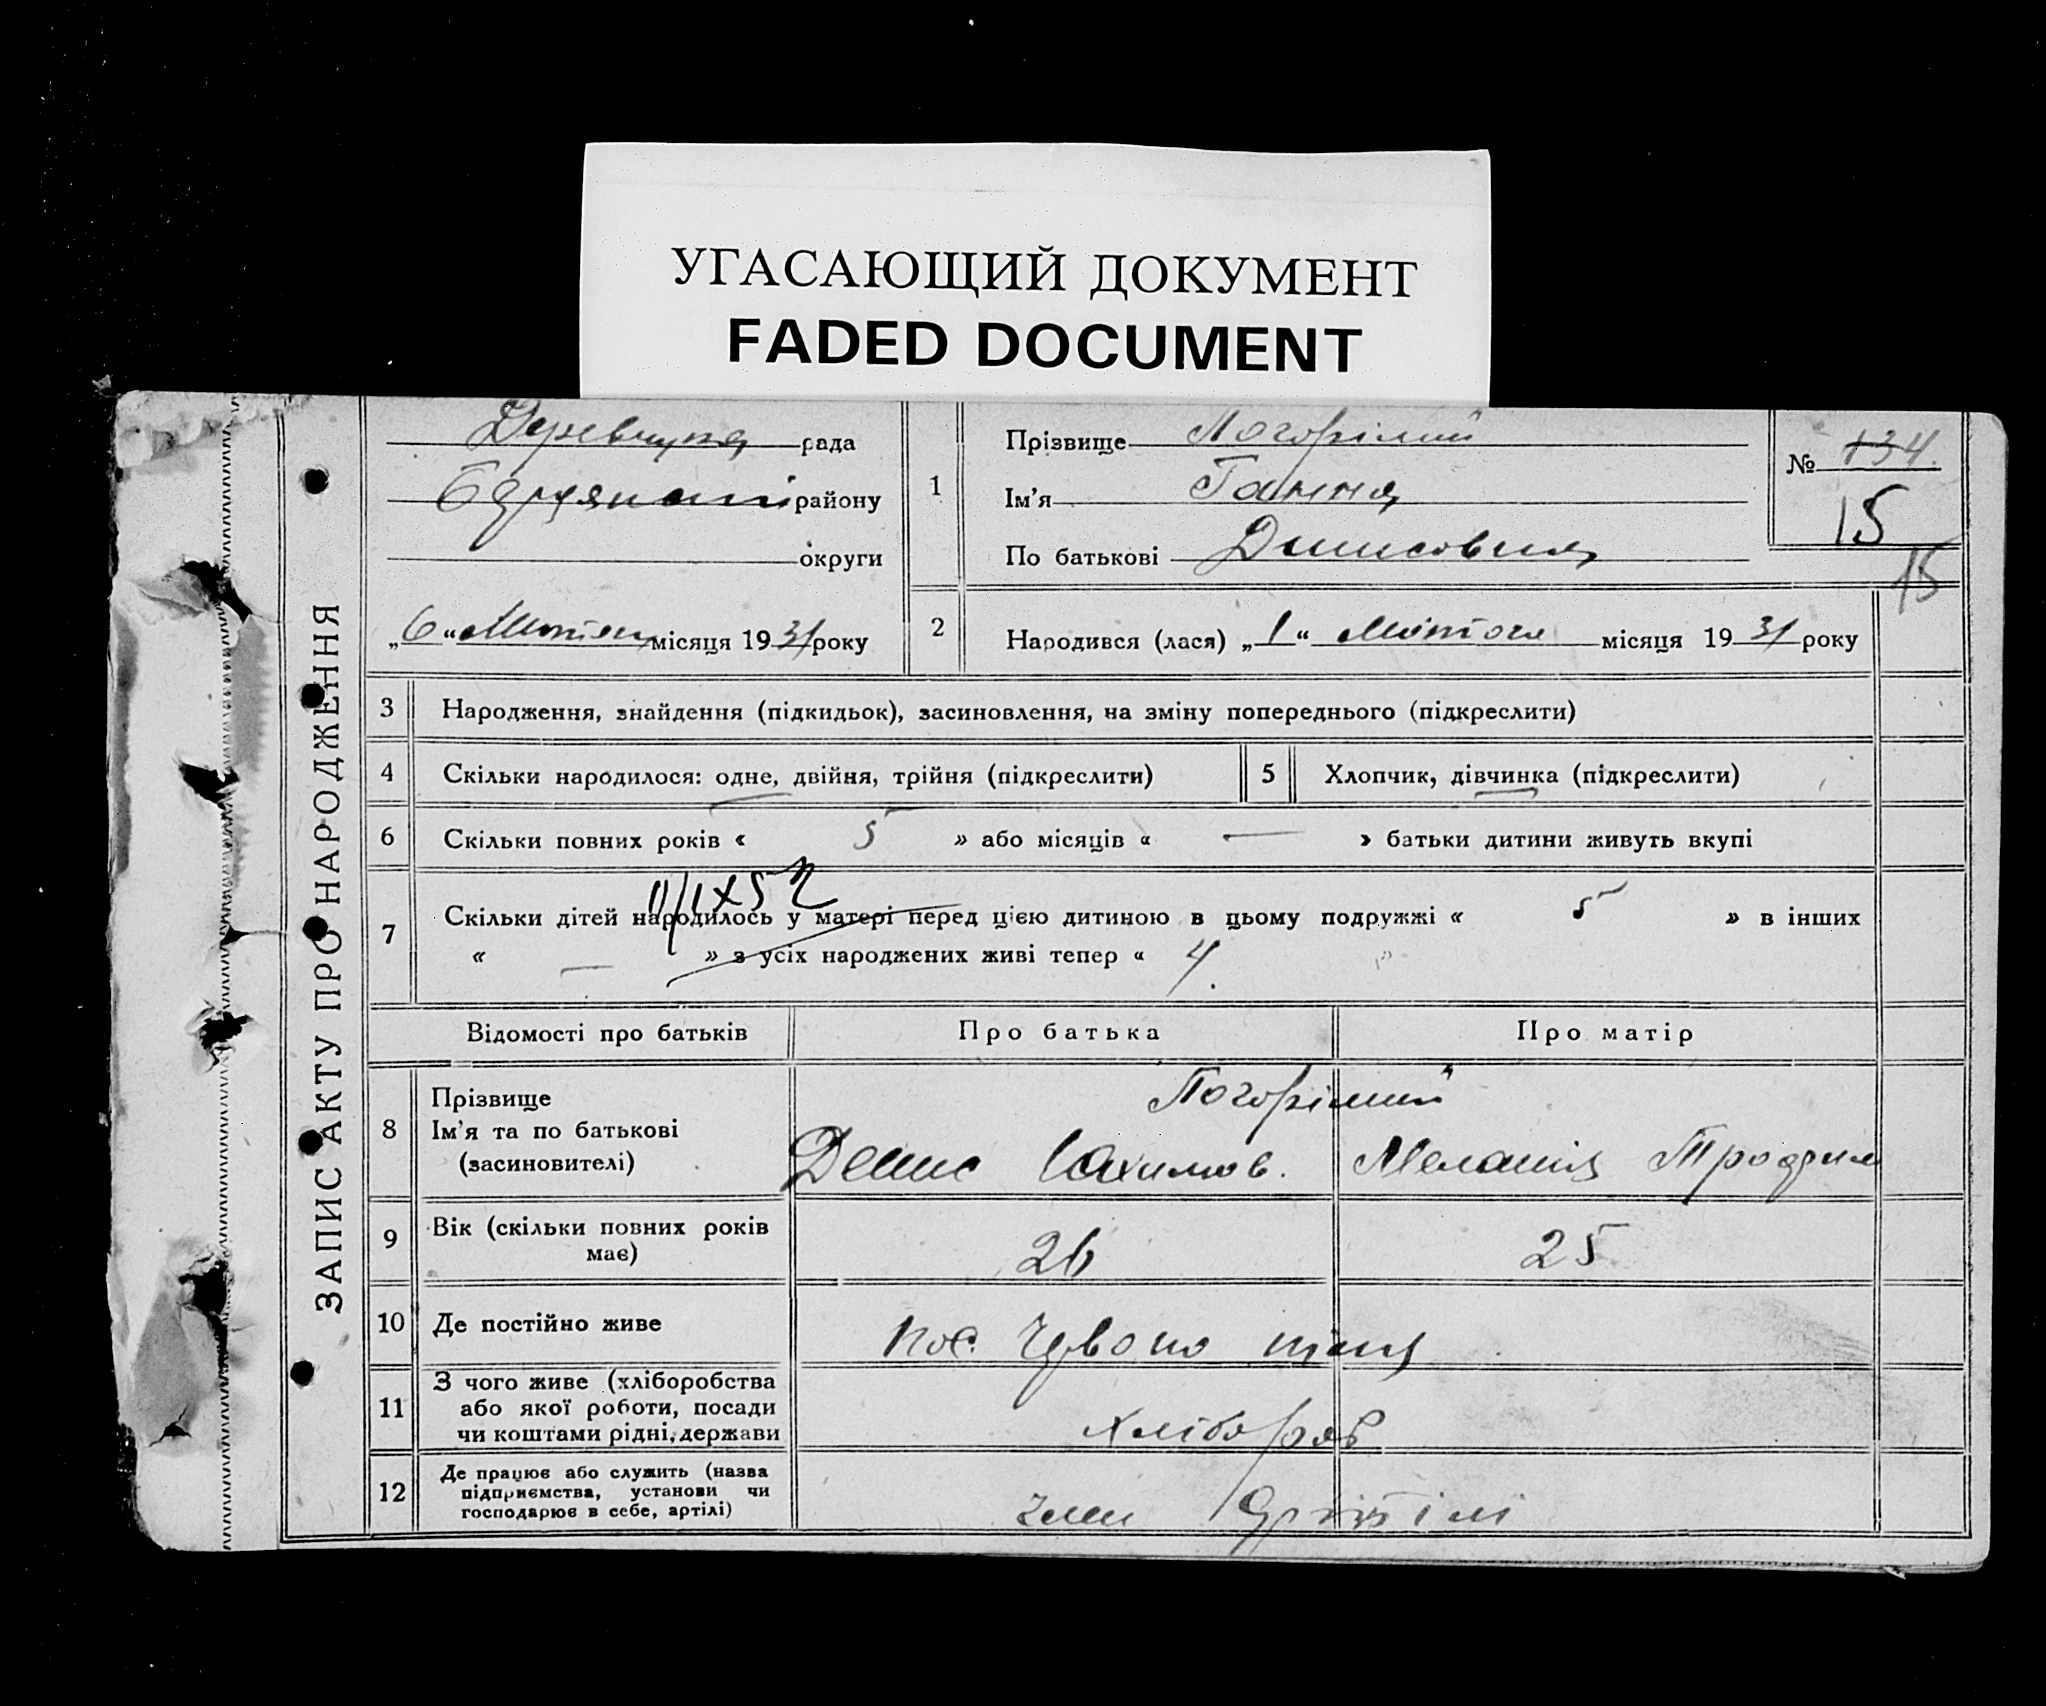 УГАСАЮЩИЙ ДОКУМЕНТ
FADED DOCUMENT
ЗАПИС АКТУ ПРО НАРОДЖЕННЯ
рада
району
округи
„6“ місяця 1931 року
1
Прізвище Погорілий
Ім’я Ганна
По батькові Денисовна
№ 134
15
15
2
Народився (лася) „1“ Лютого місяця 1931 року
3
Народження, знайдення (підкидьок), засиновлення, на зміну попереднього (підкреслити)
4
Скільки народилося: одне, двійня, трійня (підкреслити)
5
Хлопчик, дівчинка (підкреслити)
6
Скільки повних років « 5 » або місяців « — » батьки дитини живуть вкупі
7
Скільки дітей народилось у матері перед цією дитиною в цьому подружжі « 5 » в інших
« — » з усіх народжених живі тепер « 4. »
Відомості про батьків
Про батька
Про матір
8
Прізвище
Ім’я та по батькові
(засиновителі)
Погорілий
Денис Юхимов.
Меланія
9
Вік (скільки повних років
має)
26
25
10
Де постійно живе
пос. Червоно
11
З чого живе (хліборобства
або якої роботи, посади
чи коштами рідні, держави
Хлібороб
12
Де працює або служить (назва
підприємства, установи чи
господарює в себе, артілі)
член Артілі